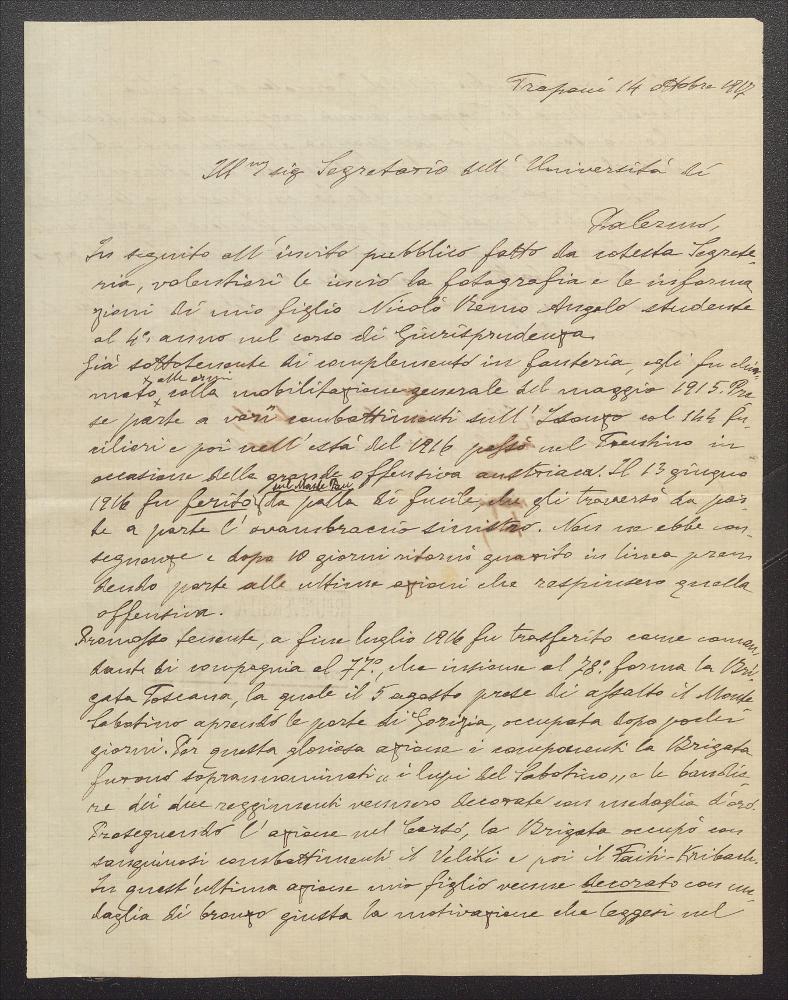 Trapani 14 ottobre 1917
Ill.mo sig Segretario dell' Università di
Palermo,
In seguito all' invito pubblico fatto da cotesta Segrete-
ria, volentieri le invio la fotografia e le informa
zioni di mio figlio Nicolò Remo Angelo studente
al 4° anno nel corso di Giurisprudenza.
Già sottotenente di complemento in fanteria, egli fu chia-
alle armi
mato, colla mobilitazione generale del maggio 1915. Pre-
se parte a varii combattimenti sull' Isonzo col 144 fu-
cilieri e poi nell' està del 1916 passò nel Trentino in
occasione della grande offensiva austriaca. Il 13 giugno
sul Monte
1916 fu ferito da palla di fucile, che gli traversò da par-
te a parte l' avambraccio sinistro. Non va ebbe con-
seguenze e dopo 10 giorni ritornò guarito in linea pren
dendo parte alle ultime azioni che respinsero quella
offensiva.
Promosso tenente, a fine luglio 1916 fu trasferito come coman
dante di compagnia al 77°, che insieme al 78° forma la Bri
gata Toscana, la quale il 5 agosto prese di assalto il Monte
Sabotino aprendo le porte di Gorizia, occupata dopo pochi
giorni. Per questa gloriosa azione i componenti la Brigata
furono soprannominati „ i lupi del Sabotino „ e le bandie-
re dei due reggimenti vennero decorate con medaglia d'oro.
Proseguendo l' azione nel Carso, la Brigata occupò con
sanguinosi combattimenti il Veliki e poi il Faiti-Kribach.
In quest' ultima azione mio figlio venne decorato con me
daglia di bronzo giusta la motivazione che leggesi nel